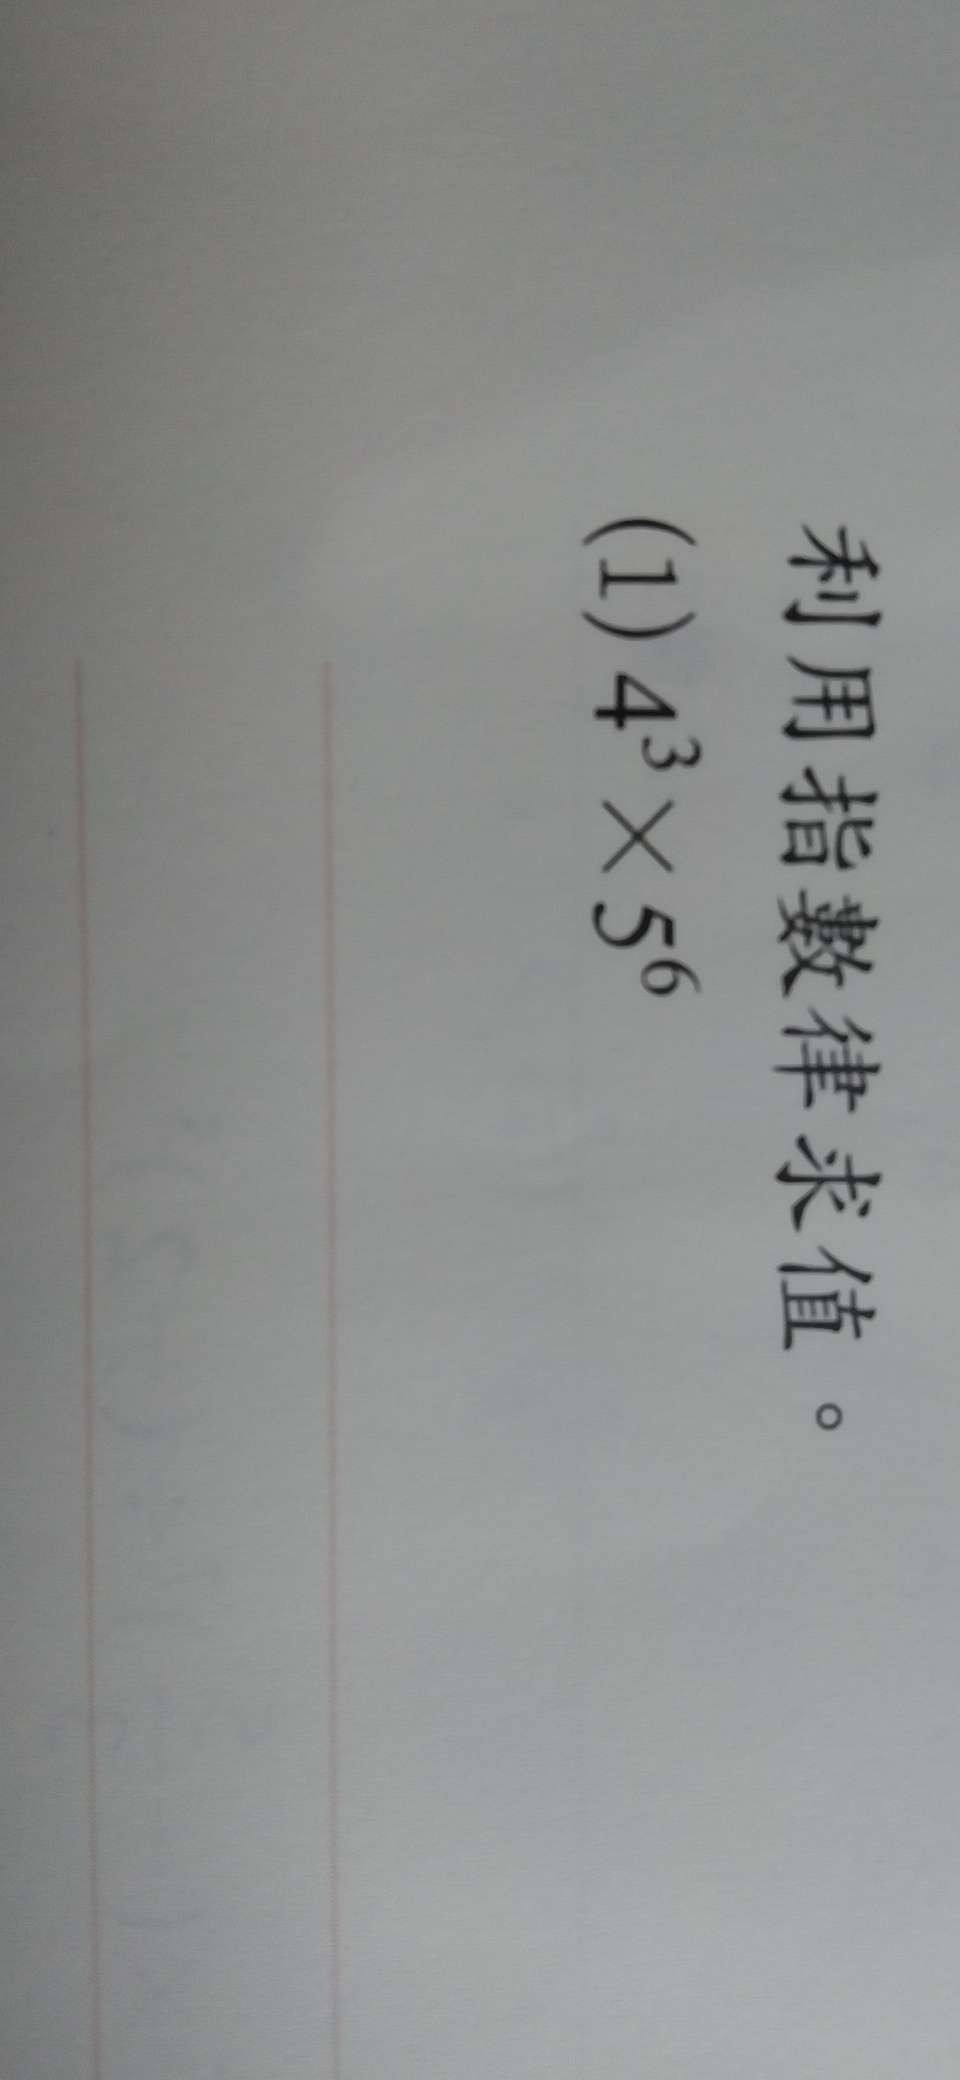 利用指數律求值。
(1) 4³×5⁶